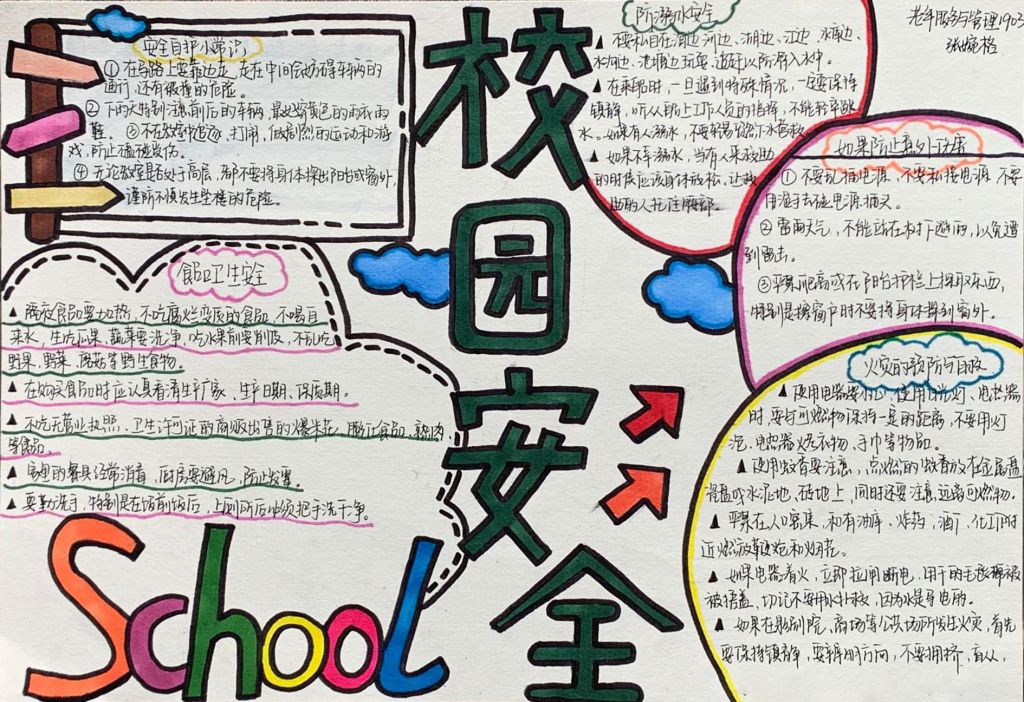 校园安全
School
老年服务与管理1903
安全自护小常识
① 在马路上要靠边走,走在中间会妨碍车辆的
通行,还有被撞的危险。
② 下雨天特别注意前后的车辆,最好穿黄色的雨衣雨
鞋。③ 不在教室中追逐,打闹,做剧烈的运动和游
戏,防止磕碰受伤。
④ 无论教室是否处于高层,都不要将身体探出阳台或窗外,
谨防不慎发生坠楼的危险。
防溺水安全
▲ 不要私自在海边、河边、湖边、江边、水库边、
水沟边、池塘边玩耍、追赶以防滑入水中。
▲ 在乘船时,一旦遇到特殊情况,一定要保持
镇静,听从船上工作人员的指挥,不能轻率跳
水。如果有人溺水,不要贸然下水营救
▲ 如果不幸溺水,当有人来救助
的时候应该身体放松,让救
助的人托住腰部。
如果防止意外伤害
① 不要乱插电源,不要私接电源,不要
用湿手去碰电源插头。
② 雷雨天气,不能站在树下避雨,以免遭
到雷击。
③ 平常爬高或在阳台护栏上探取东西,
特别是擦窗户时不要将身体探到窗外。
食品卫生安全
▲ 隔夜食品要加热,不吃腐烂变质的食品,不喝自
来水,生吃瓜果,蔬菜要洗净,吃水果前要削皮,不乱吃
野果,野菜,蘑菇等野生食物。
▲ 在购买食品时应认真看清生产厂家、生产日期、保质期。
▲ 不吃无营业执照、卫生许可证的商贩出售的爆米花,膨化食品,熟肉
等食品。
▲ 家里的餐具经常消毒,厨房要通风,防止发霉。
▲ 要勤洗手,特别是在饭前饭后,上厕所后必须把手洗干净。
火灾的预防与自救
▲ 使用电器要小心,使用日光灯、电热器
时,要与可燃物保持一定的距离,不要用灯
泡、电热器烘烤衣物,手巾等物品。
▲ 使用蚊香要注意,点燃的蚊香放在金属盘
瓷盘或水泥地、砖地上,同时还要注意远离可燃物。
▲ 平常在人口密集,和有油库、炸药,酒厂、化工厂附
近燃放鞭炮和烟花。
▲ 如果电器着火,立即拉闸断电,用干的毛毯棉被
被捂盖,切记不要用水扑救,因为水是导电的。
▲ 如果在影剧院,商场等公共场所发生火灾,首先
要保持镇静,要辨明方向,不要拥挤,盲从,